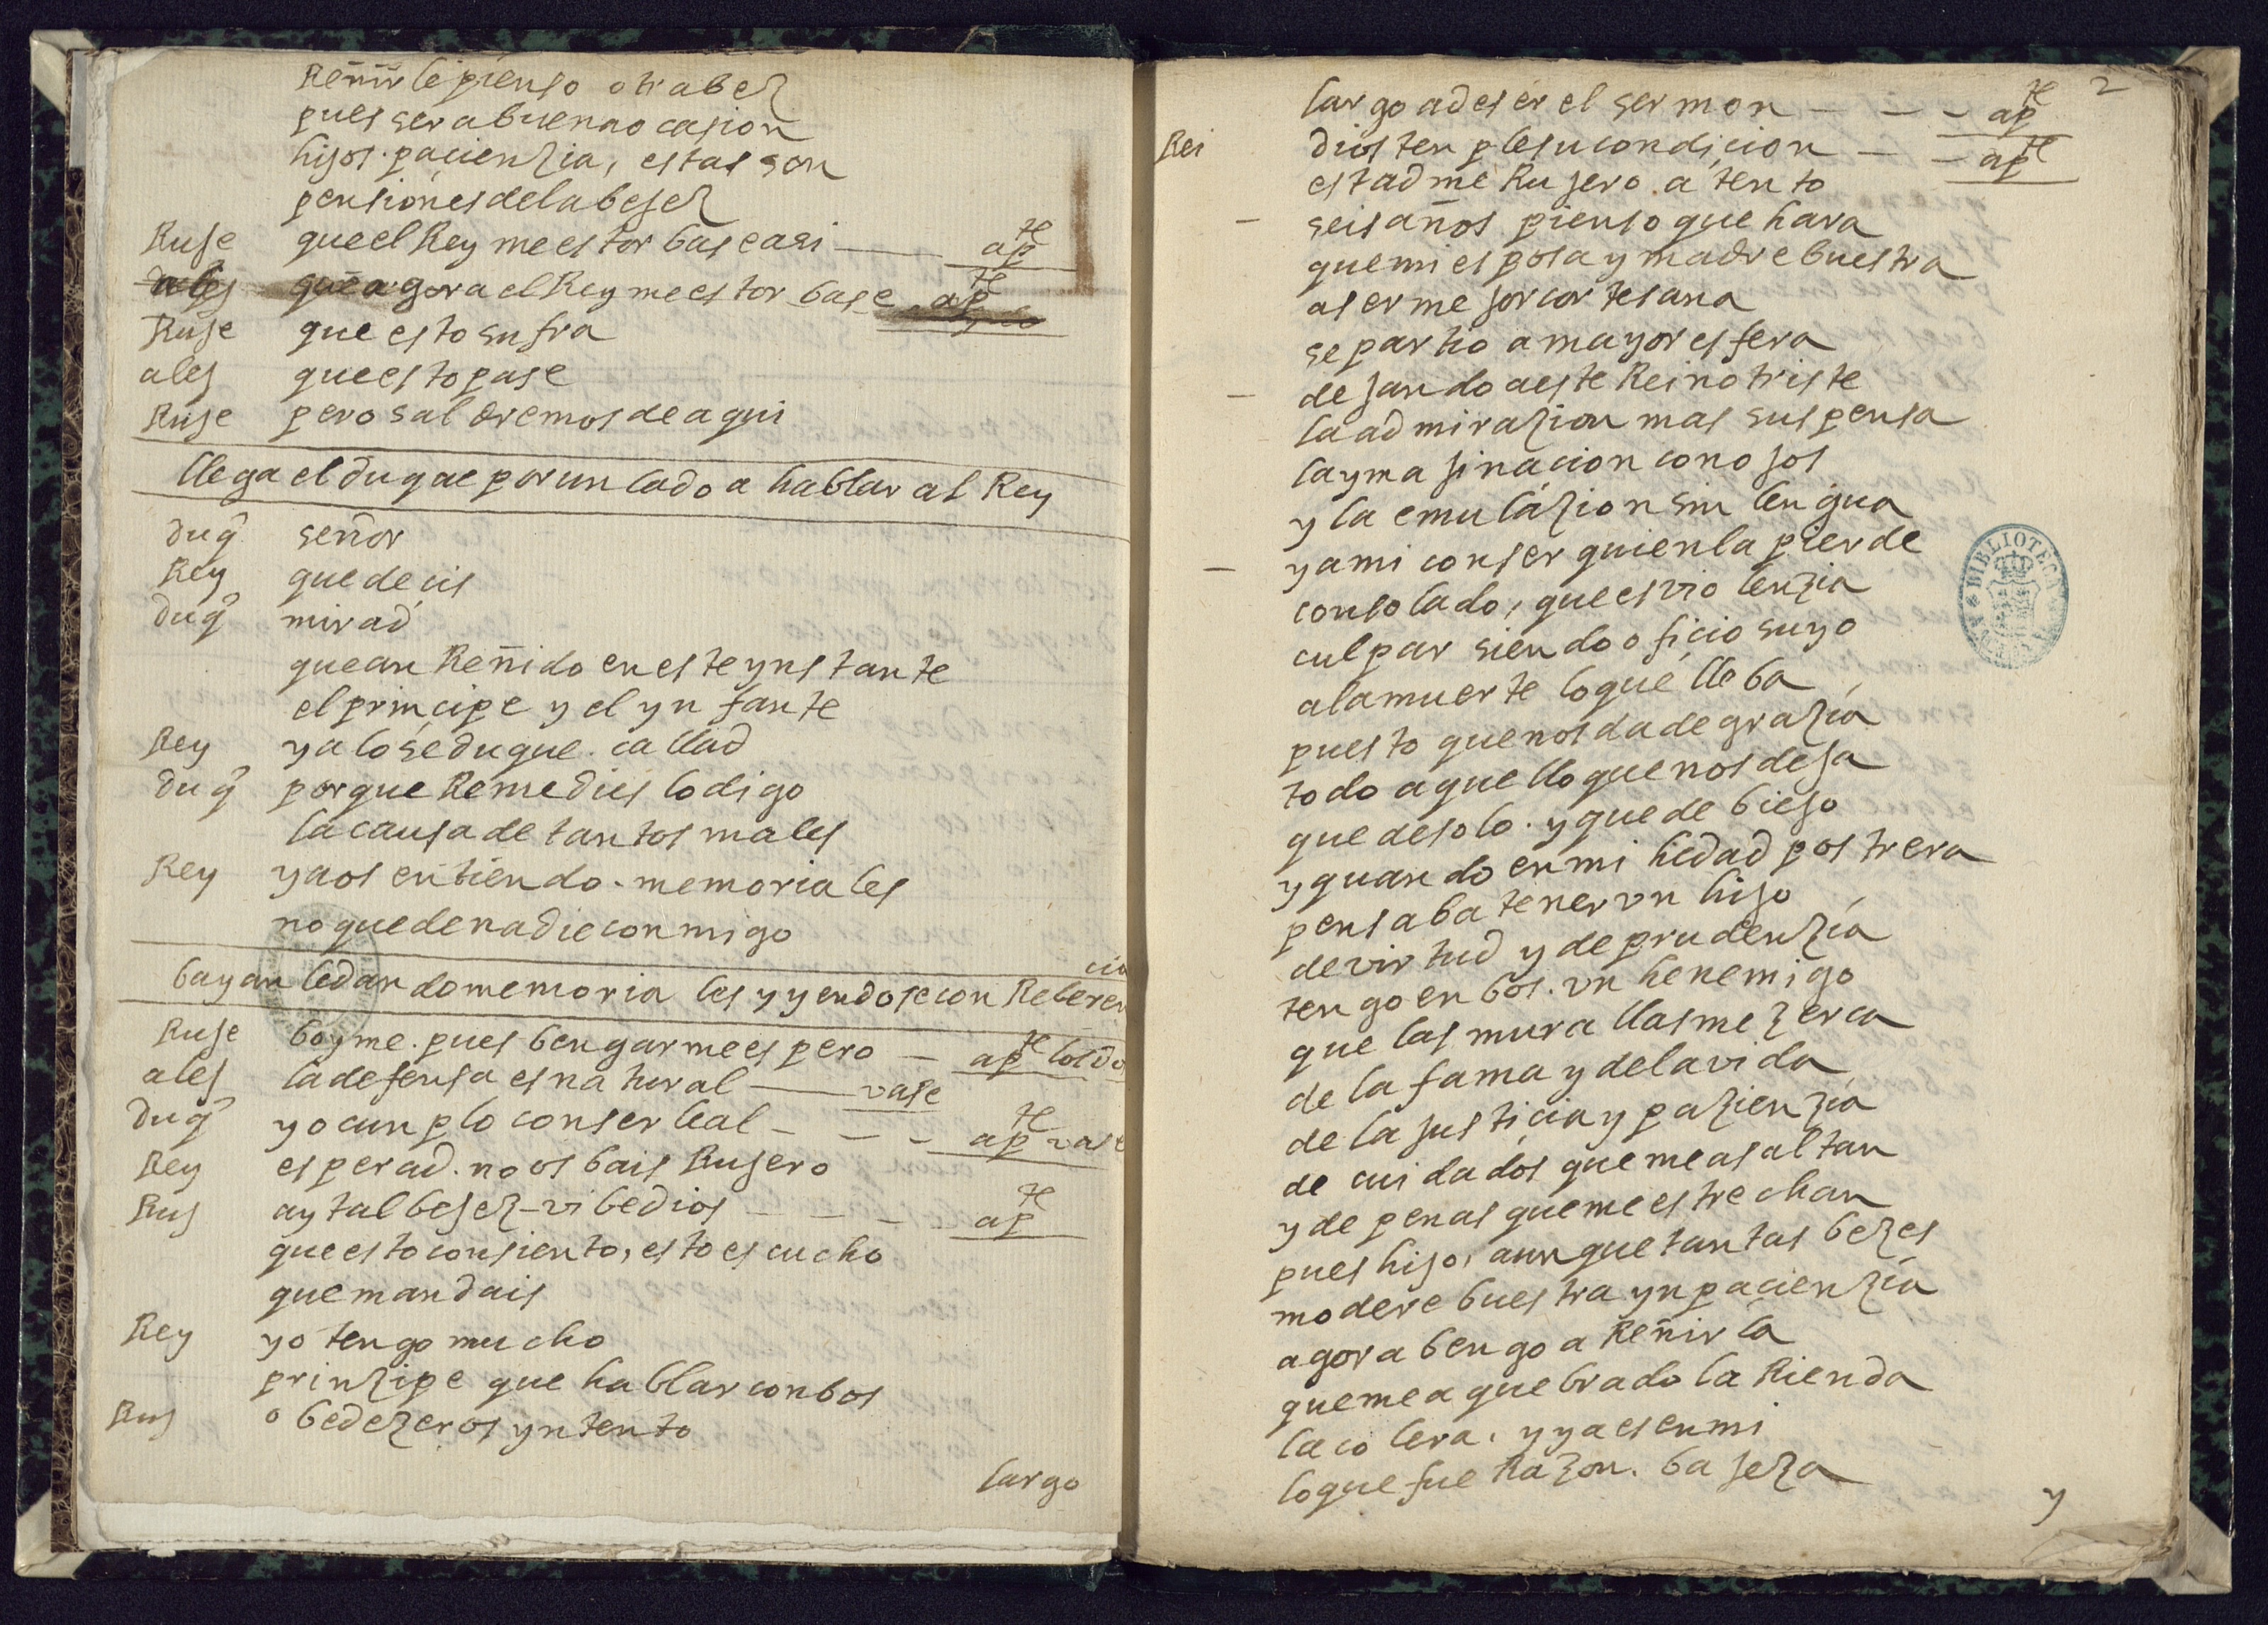 Reñirle pienso otra bez
pues sera buena ocasion
hijos. pacienzia, estas son
pensiones de la bejez
Ruje que el Rey me estorbase asi — apte
ales que agora el Rey me estorbase apte
Ruje que esto sufra
ales que esto pase
Ruje pero saldremos de aqui
llega el duque por un lado a hablar al Rey
duq señor
Rey que decis
duq mirad
que an Reñido en este ynstante
el principe y el ynfante
Rey ya lo se duque. callad
duq porque Remedies lo digo
la causa de tantos males
Rey ya os entiendo. memoriales
no quede nadie conmigo
bayanle dando memoriales y yendose con Reberencia
Ruje boyme. pues bengarme espero — apte
ales la defensa es natural — vase
duq yo cunplo con ser leal - - - apte vase
Rey esperad. no os bais Rujero
Ruj ay tal bejez - vibe dios - - - apte
que esto consiento, esto escucho
que mandais
Rey yo tengo mucho
prinzipe que hablar con bos
Ruj obedezeros yntento
largo
2
largo a de ser el sermon - - - apte
Rei dios tenple su condicion - - apte
estadme Rujero. atento
seis años pienso que hara
que mi esposa y madre buestra
a ser mejor cortesana
se partio a mayor esfera
dejando a este Reino triste
la admirazion mas suspensa
la ymajinacion con ojos
y la emulazion sin lengua
y a mi con ser quien la pierde
consolado, que es violenzia
culpar siendo oficio suyo
a la muerte lo que lleba
puesto que nos da de grazia
todo aquello que nos deja
quede solo. y quede biejo
y quando en mi hedad postrera
pensaba tener vn hijo
de virtud y de prudenzia
tengo en bos. vn henemigo
que las murallas me zerca
de la fama y de la vida
de la justicia y pazienzia
de cuidados que me asaltan
y de penas que me estrechan
pues hijo, aunque tantas bezes
modere buestra ynpacienzia
agora bengo a Reñirla
que me a quebrado la Rienda
la colera. y ya es en mi
lo que fue Razon. bajeza
y
BIBLIOTECA